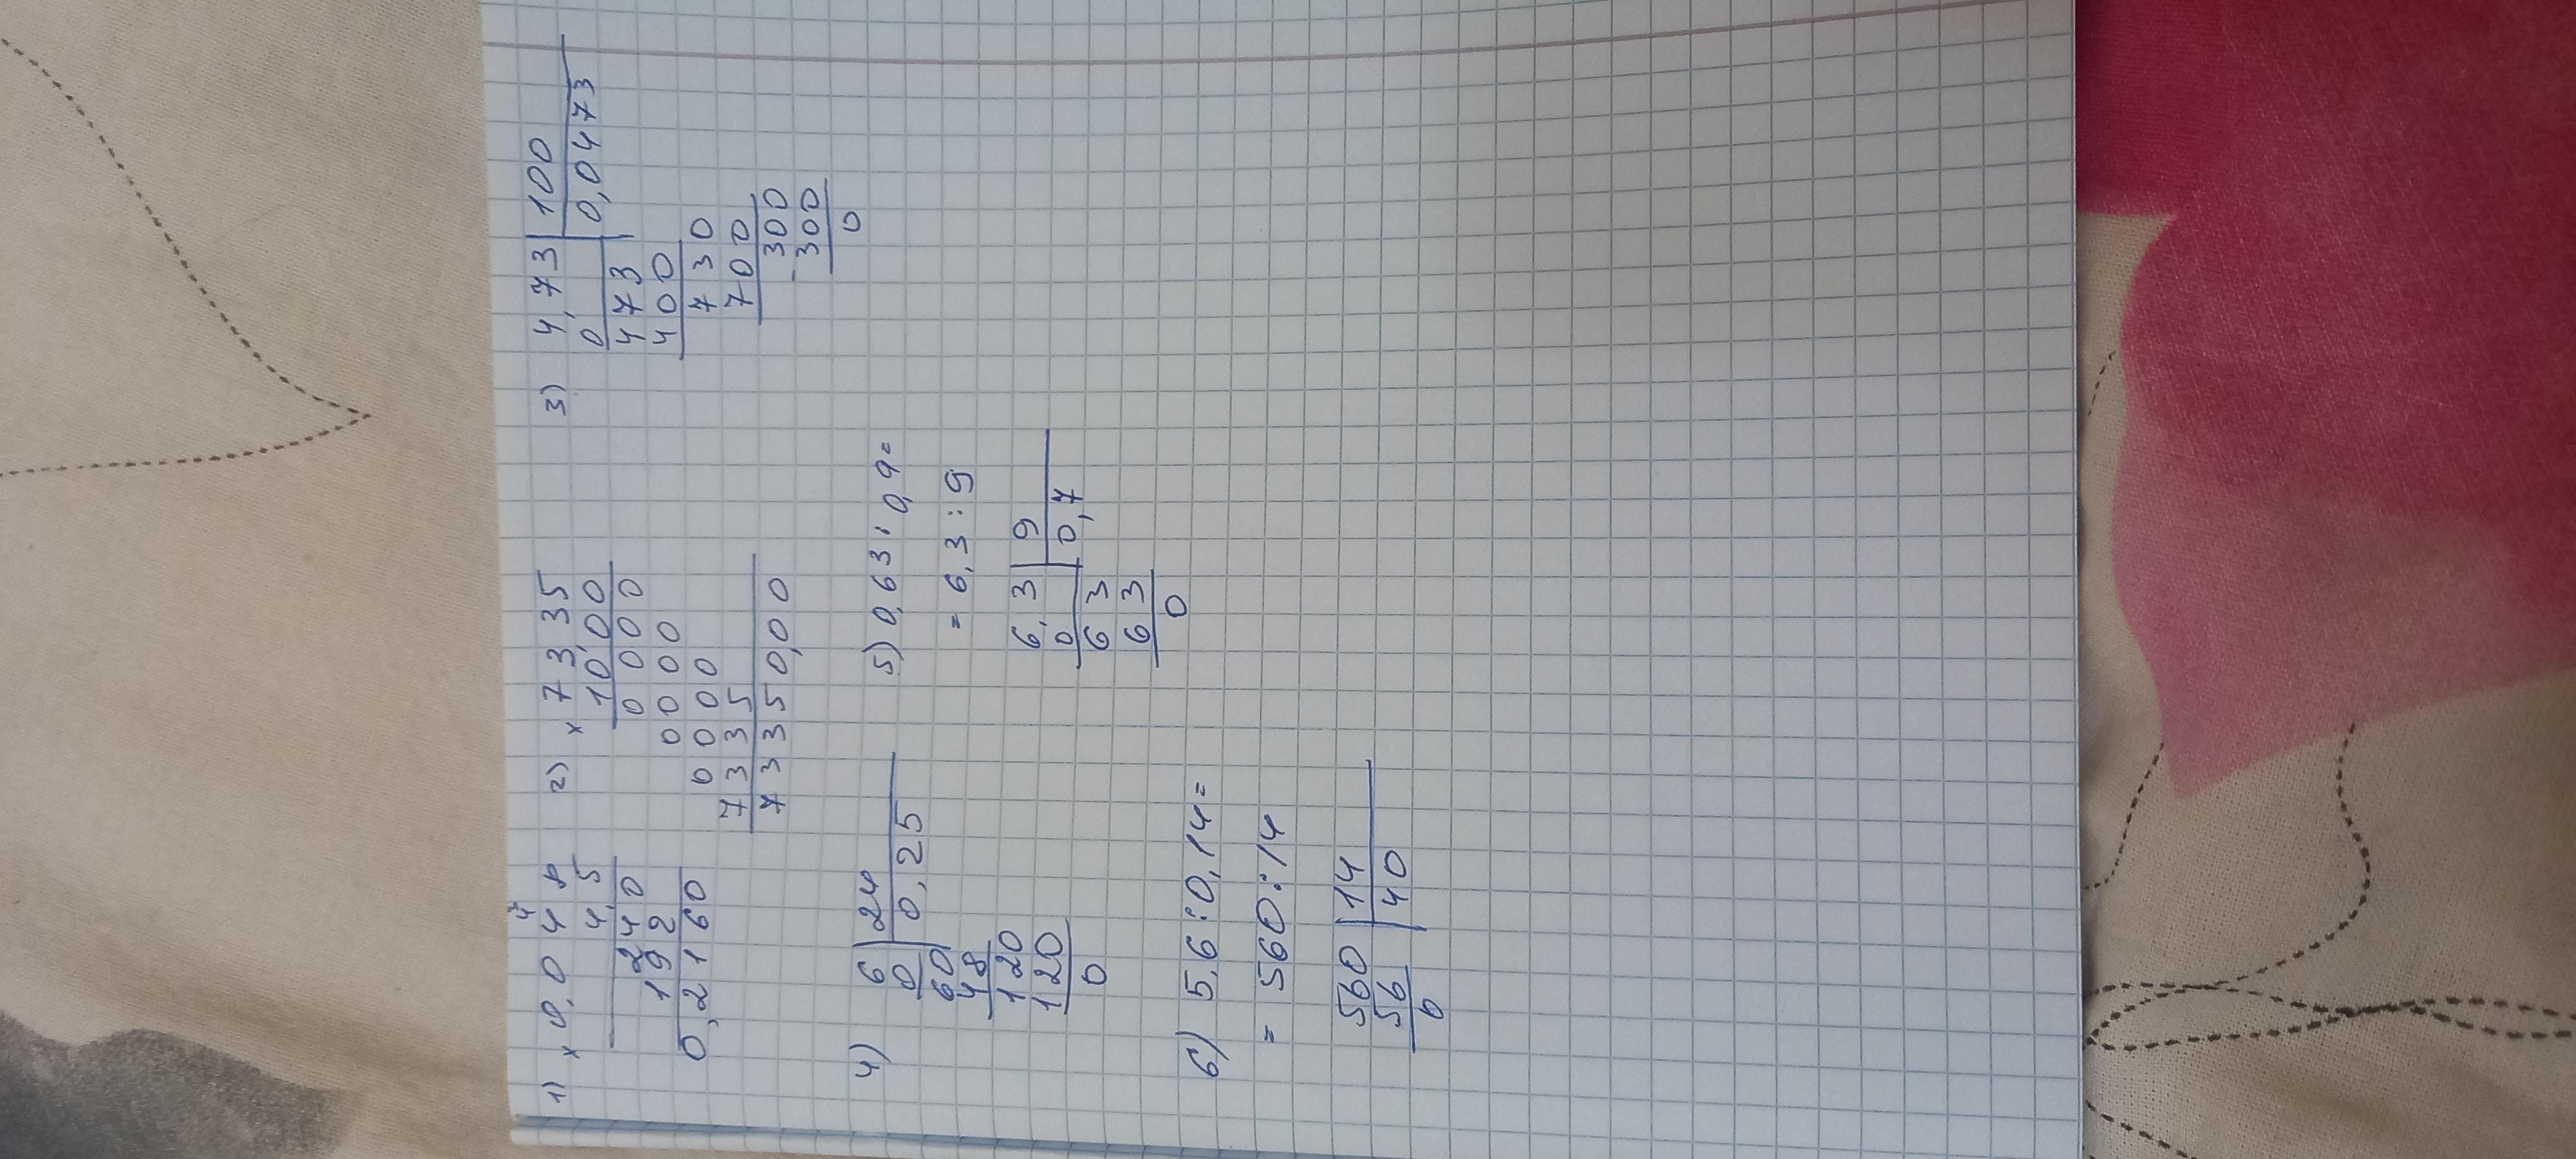 1) × 0,048
4
4,5
240
192
0,2160
2) × 73,35
1000
0000
0000
0000
7335
73350,00
3) 4,73 | 100
0 | 0,0473
473
400
730
700
300
300
0
4) 6 | 24
0 | 0,25
60
48
120
120
0
5) 0,63 : 0,9 =
= 6,3 : 9
6,3 | 9
0 | 0,7
63
63
0
6) 5,6 : 0,14 =
= 560 : 14
560 | 14
56 | 40
0